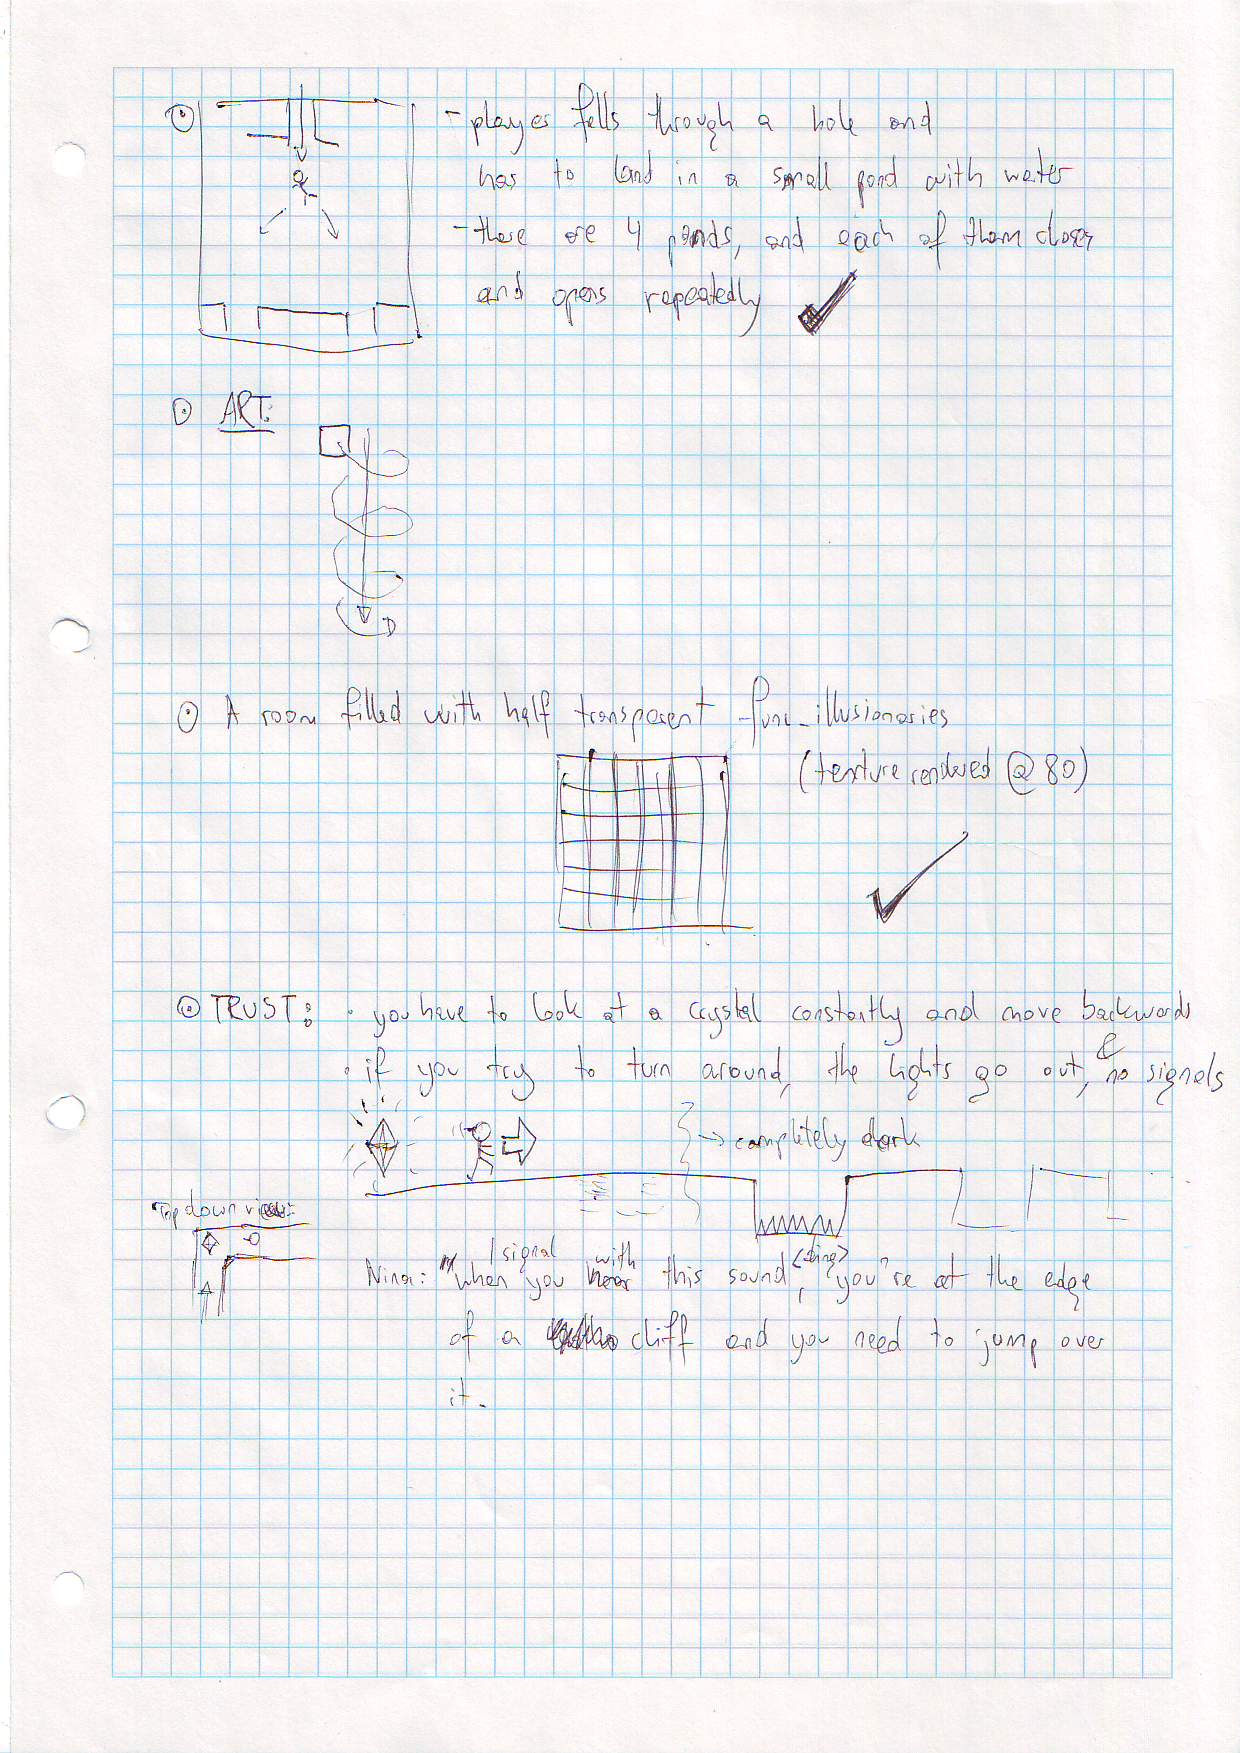 - player falls through a hole and
has to land in a small pond with water
- there are 4 ponds, and each of them closes
and opens repeatedly
ART:
A room filled with half transparent func_illusionaries
(texture rendered @ 80)
TRUST: · you have to look at a crystal constantly and move backwards
· if you try to turn around, the lights go out, & no signals
→ completely dark
Top down view:
Nina: "When you I signal with this sound, <ding> you're at the edge
of a cliff and you need to jump over
it.